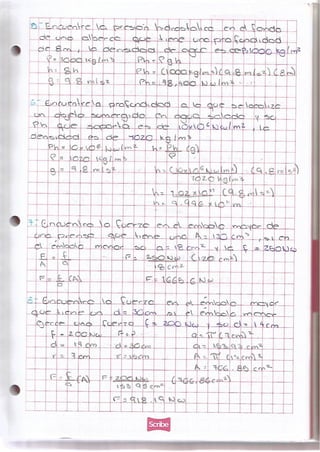 5: Encuentre la presión hidrostatica en el fondo
de una alberca que tiene una profundidad
de 8m, la densidad de agua es de P1000 kg/m³
P= 1000 kg/m³ Ph= Pgh
h= 8h Ph= (1000kg/m³)(9.8 m/s²)(8m)
g= 9.8 m/s² Ph= 78,400 Nw/m²
6: Encuentre la profundidad a la que se localiza
un objeto sumergido en agua salada y se
Ph que soporta es de 10x10⁶ Nw/m², la
densidad es de 1020 kg/m³
Ph= 10x10⁶ Nw/m² h= Ph (g)
P= 1020 kg/m³ P
g= 9.8 m/s² h= (10x10⁶ Nw/m²) (9.8 m/s²)
1020 kg/m³
(9.8 m/s²)
7: Encuentra la fuerza en el embolo mayor de
una prensa que tiene una A= 120 cm², si en
el embolo menor so a= 18 cm² y la f= 250Nw
F = f F= 250Nw (120 cm²)
A a 18 cm²
F= f (A) F= 1666.6 Nw
a
8: Encuentra la fuerza en el embolo mayor
que tiene un d= 30cm si el embolo menor
ejerce una fuerza f= 200 Nw y su d= 14cm
f= 200Nw F=? a= π (7cm)²
d= 14 cm d= 30cm a= 153.93 cm²
r= 7cm r= 15cm A= π (15cm)²
A= 706.85 cm²
F= f (A) F= 200Nw (706.86cm²)
a 153.93 cm²
F= 918.19 Nw
Scribe